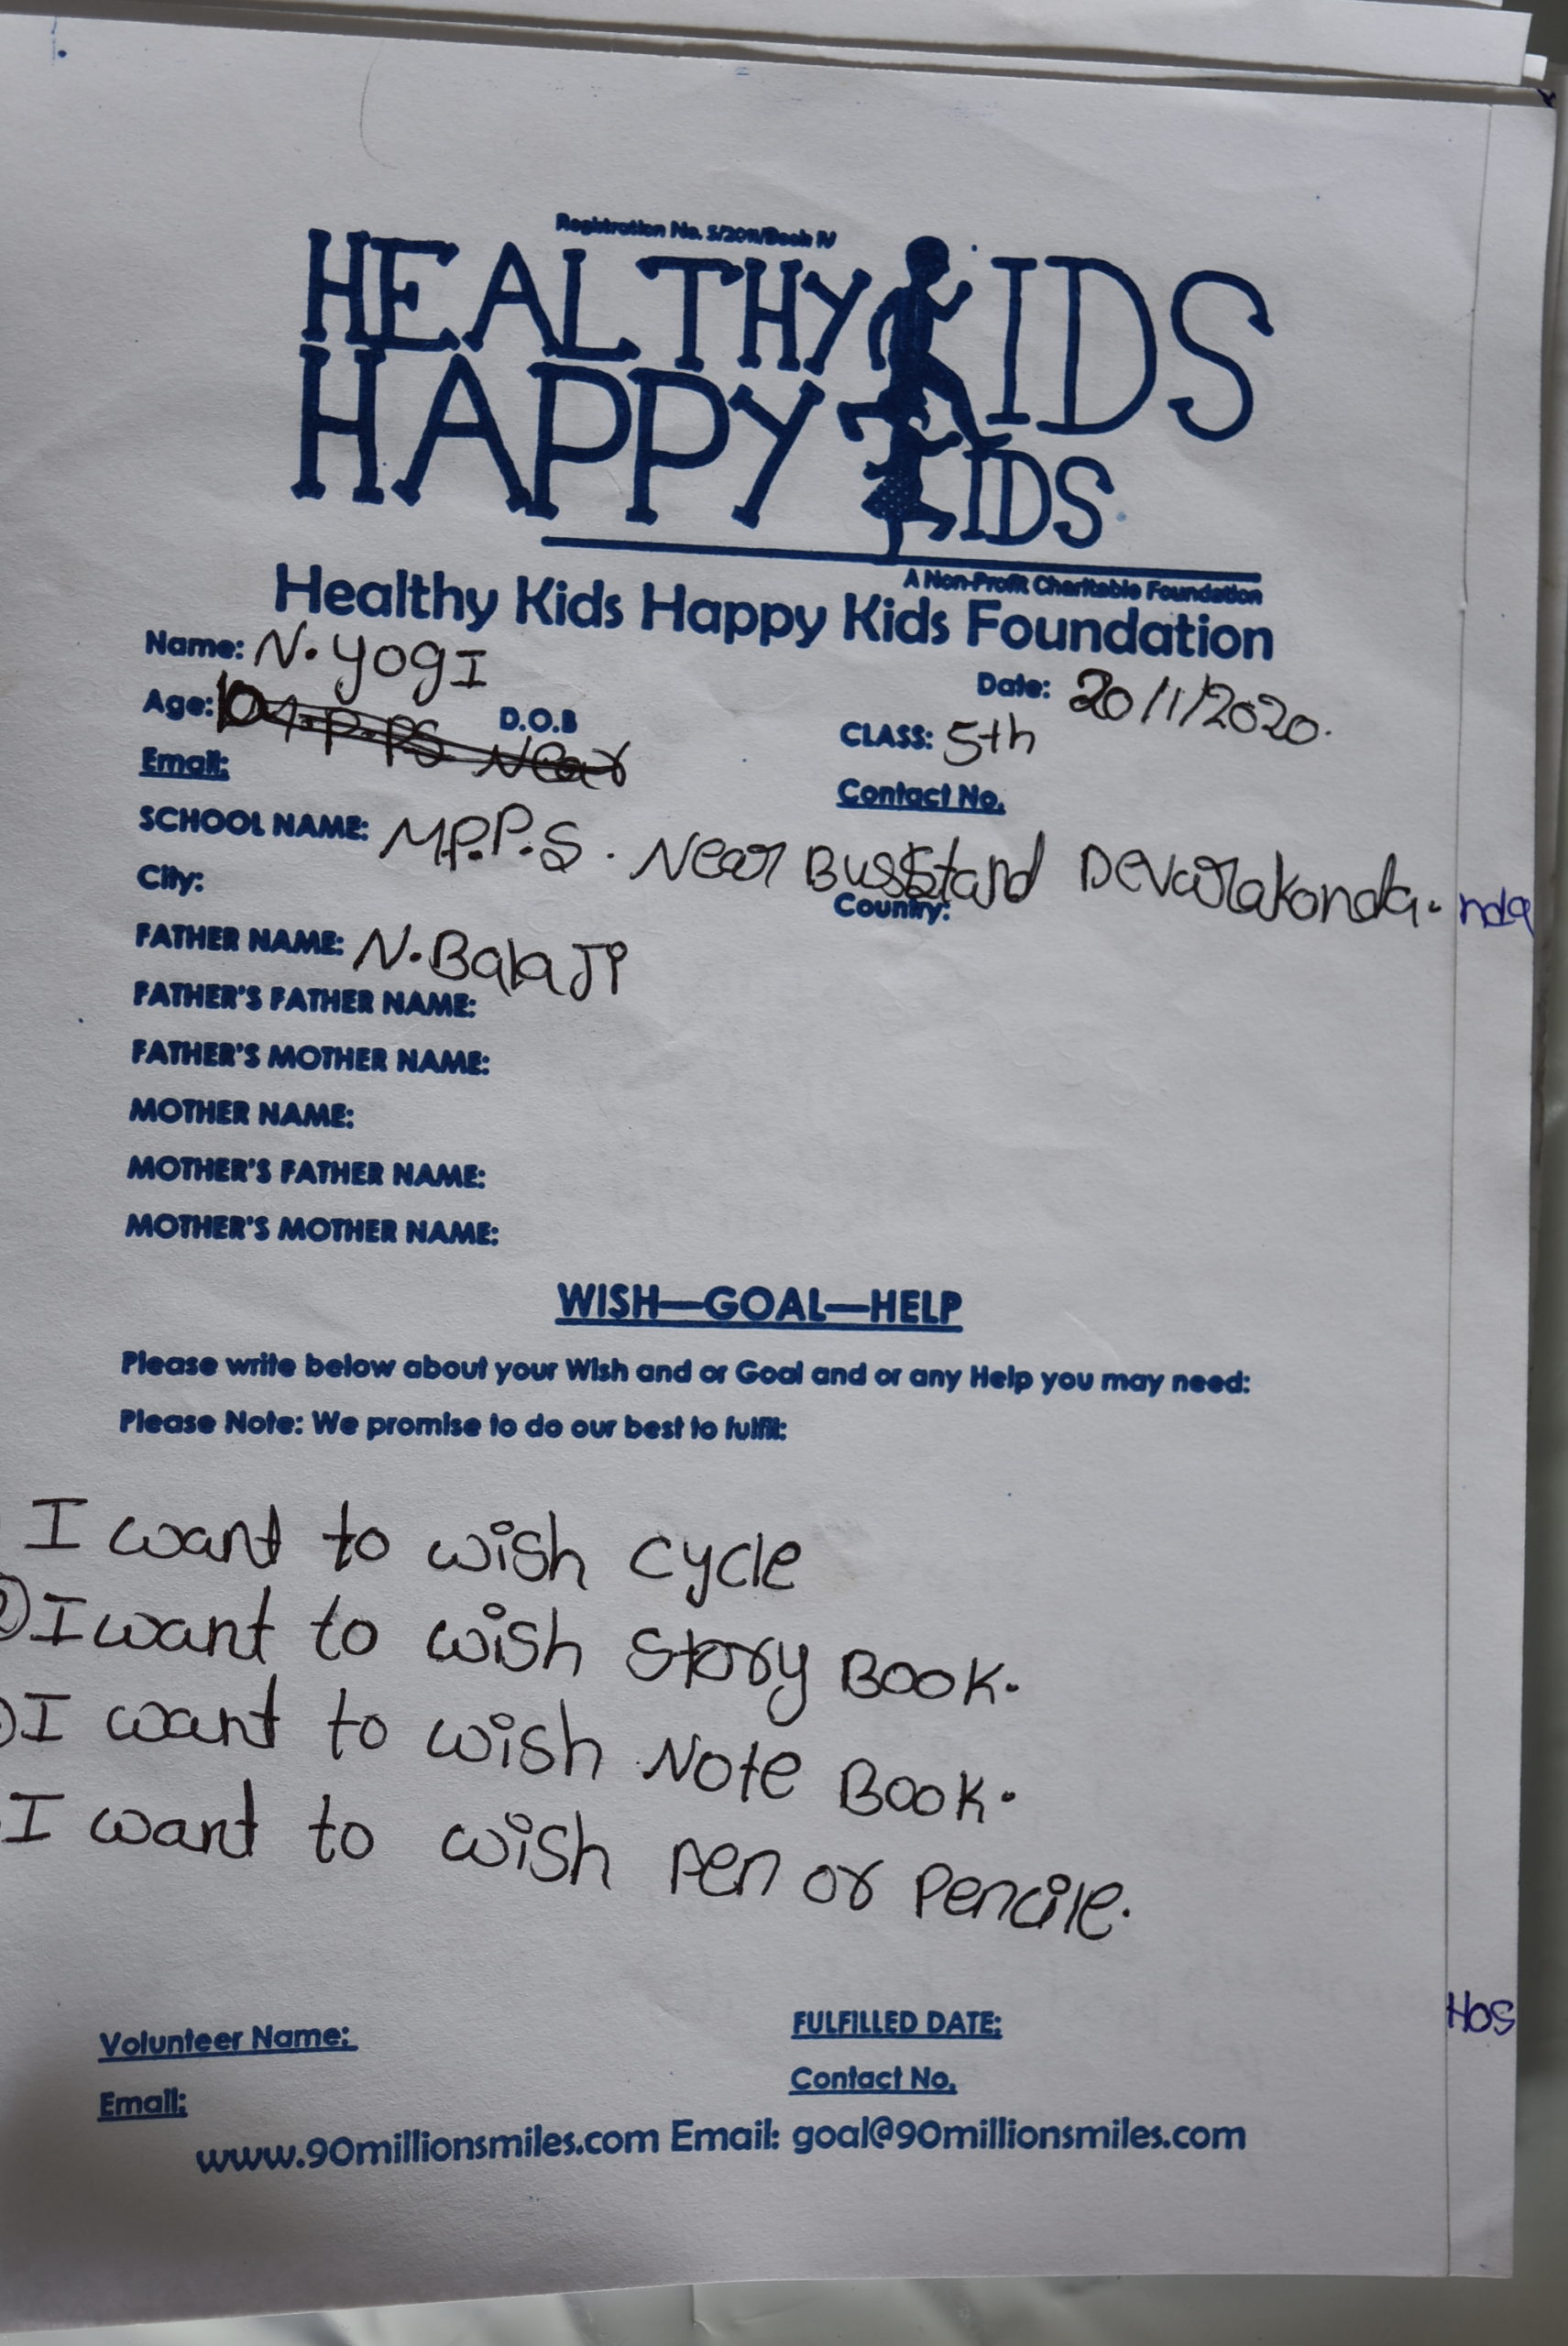 Registration No. 5/2011/Book IV
HEALTHY KIDS
HAPPY KIDS
A Non-Profit Charitable Foundation
Healthy Kids Happy Kids Foundation
Name: N. yogI
Date: 20/1/2020.
Age: 10 M.P.PS Near D.O.B
CLASS: 5th
Email:
Contact No.
SCHOOL NAME: M.P.P.S. Near Busstand Devarakonda. nda
City:
Country:
FATHER NAME: N. BalaJi
FATHER'S FATHER NAME:
FATHER'S MOTHER NAME:
MOTHER NAME:
MOTHER'S FATHER NAME:
MOTHER'S MOTHER NAME:
WISH—GOAL—HELP
Please write below about your Wish and or Goal and or any Help you may need:
Please Note: We promise to do our best to fulfil:
I want to wish cycle
② I want to wish Story Book.
I want to wish Note Book.
I want to wish Pen or Pencile.
Hos
Volunteer Name:
FULFILLED DATE:
Email:
Contact No.
www.90millionsmiles.com Email: goal@90millionsmiles.com